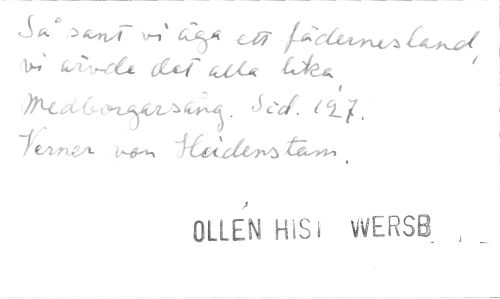 Så sant vi äga ett fädernesland,
vi ärvde det alla lika,
Medborgarsång. Sid. 127.
Verner von Heidenstam.
OLLÉN HIST WERSB